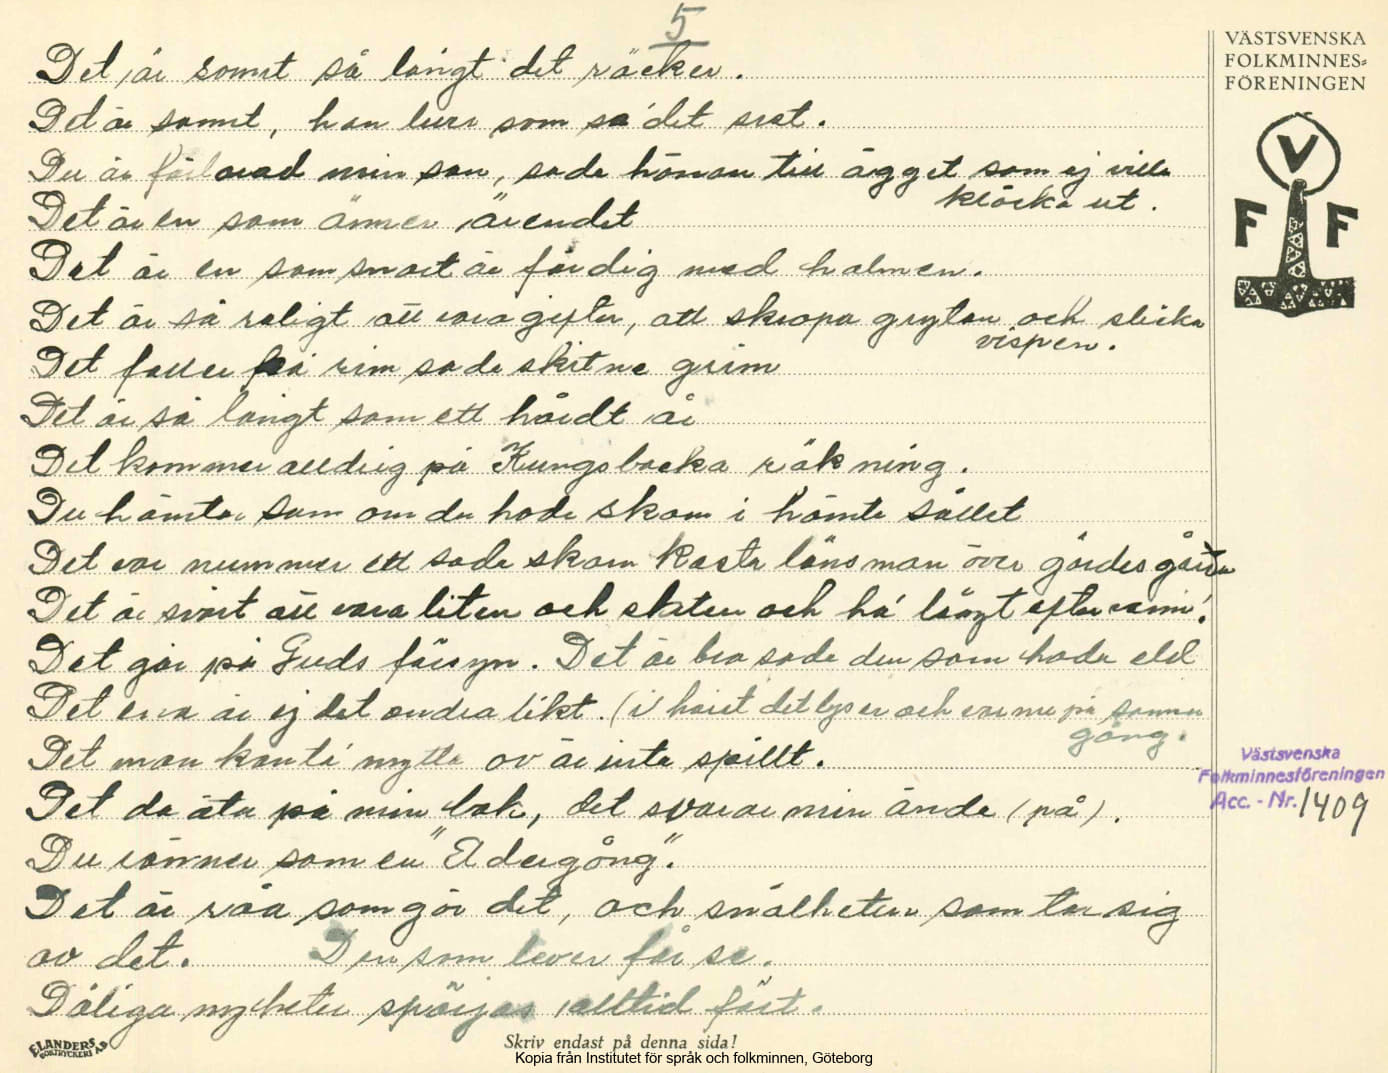 5
VÄSTSVENSKA
FOLKMINNES-
FÖRENINGEN
V
F F
Det är somt så långt det räcker.
Det är somt, han lurr som så det srat.
Du är förlorad min son, sade hönan till ägget som ej ville
kläcka ut.
Det är en som änner ärendet
Det är en som snart är färdig med halmen.
Det är så roligt att vara gifter, att skrapa grytan och slicka
vispen.
Det faller på rim sade skitne grim
Det är så långt som ett hårdt år
Det kommer alldrig på Kungsbacka räkning.
Du hämtar som om du hade skam i hämta sållet
Det var nummer ett sade skam kasta länsman över gärdesgården
Det är svårt att vara liten och skiten och ha långt efter vänn!
Det går på Guds försyn. Det är bra sade den som hade eld
Det ena är ej det andra likt. (i håret det lyser och varme på samma
gång.
Det man kan få nytta av är inte spillt.
Det du äter på min bak, det svarar min ände (på).
Du ränner som en "Edergång".
Det är råa som gör det, och snålheten som tar sig
av det. Den som lever får se.
Dåliga nyheter spörjas alltid först.
Västsvenska
Folkminnesföreningen
Acc. - Nr. 1409
ELANDERS
BOKTRYCKERI A.B
Skriv endast på denna sida!
Kopia från Institutet för språk och folkminnen, Göteborg